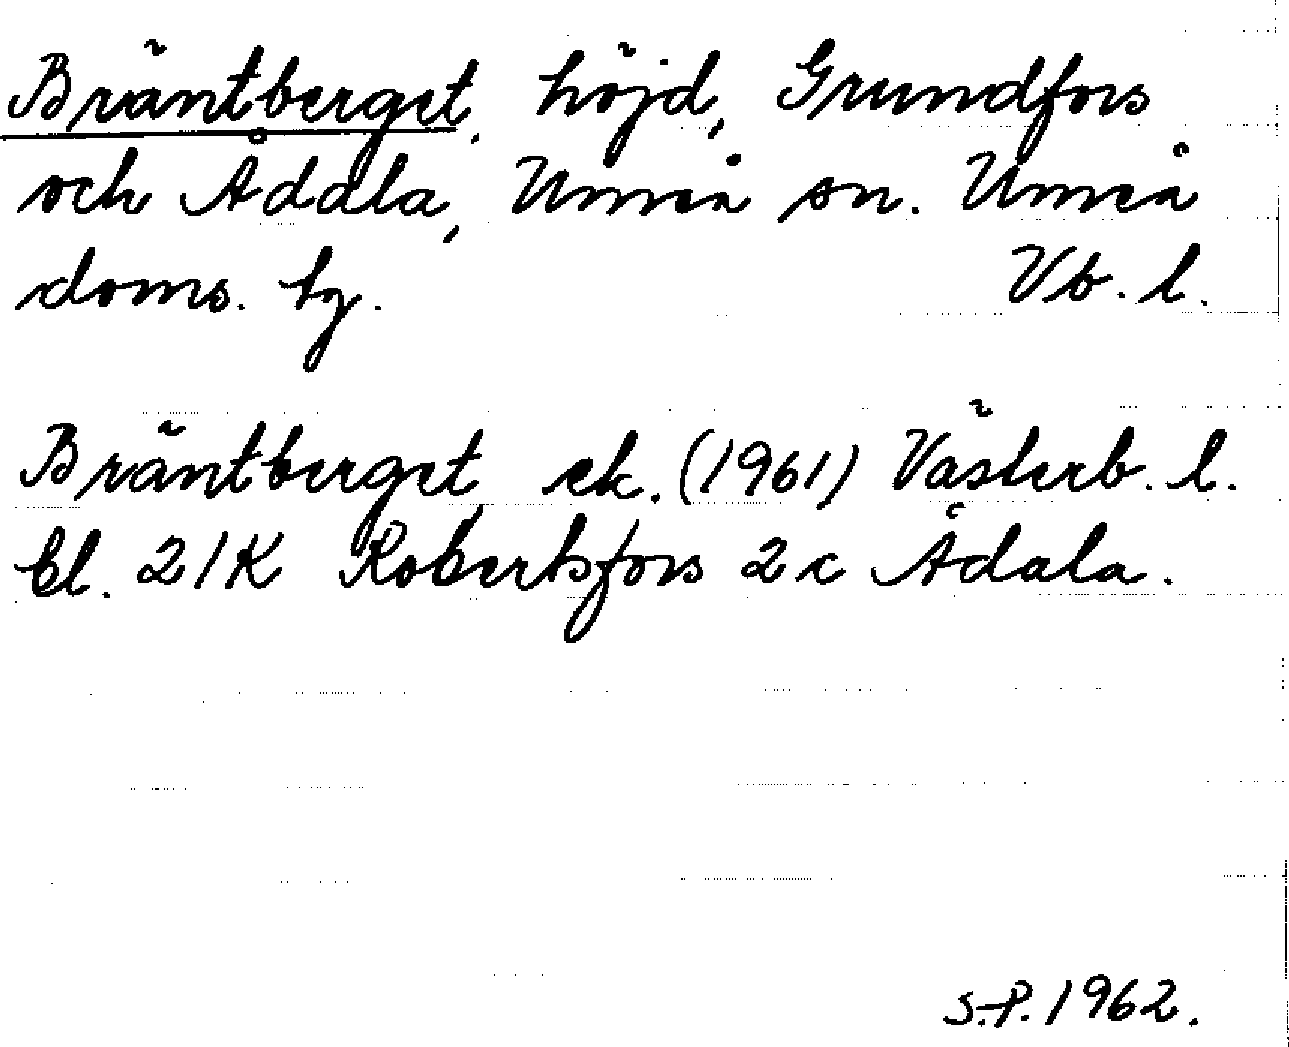 Bräntberget, höjd, Grundfors
och Ådala, Umeå sn. Umeå
doms. tg. Vb. l.
Bräntberget ek. (1961) Västerb. l.
bl. 21K Robertsfors 2c Ådala.
S.P. 1962.